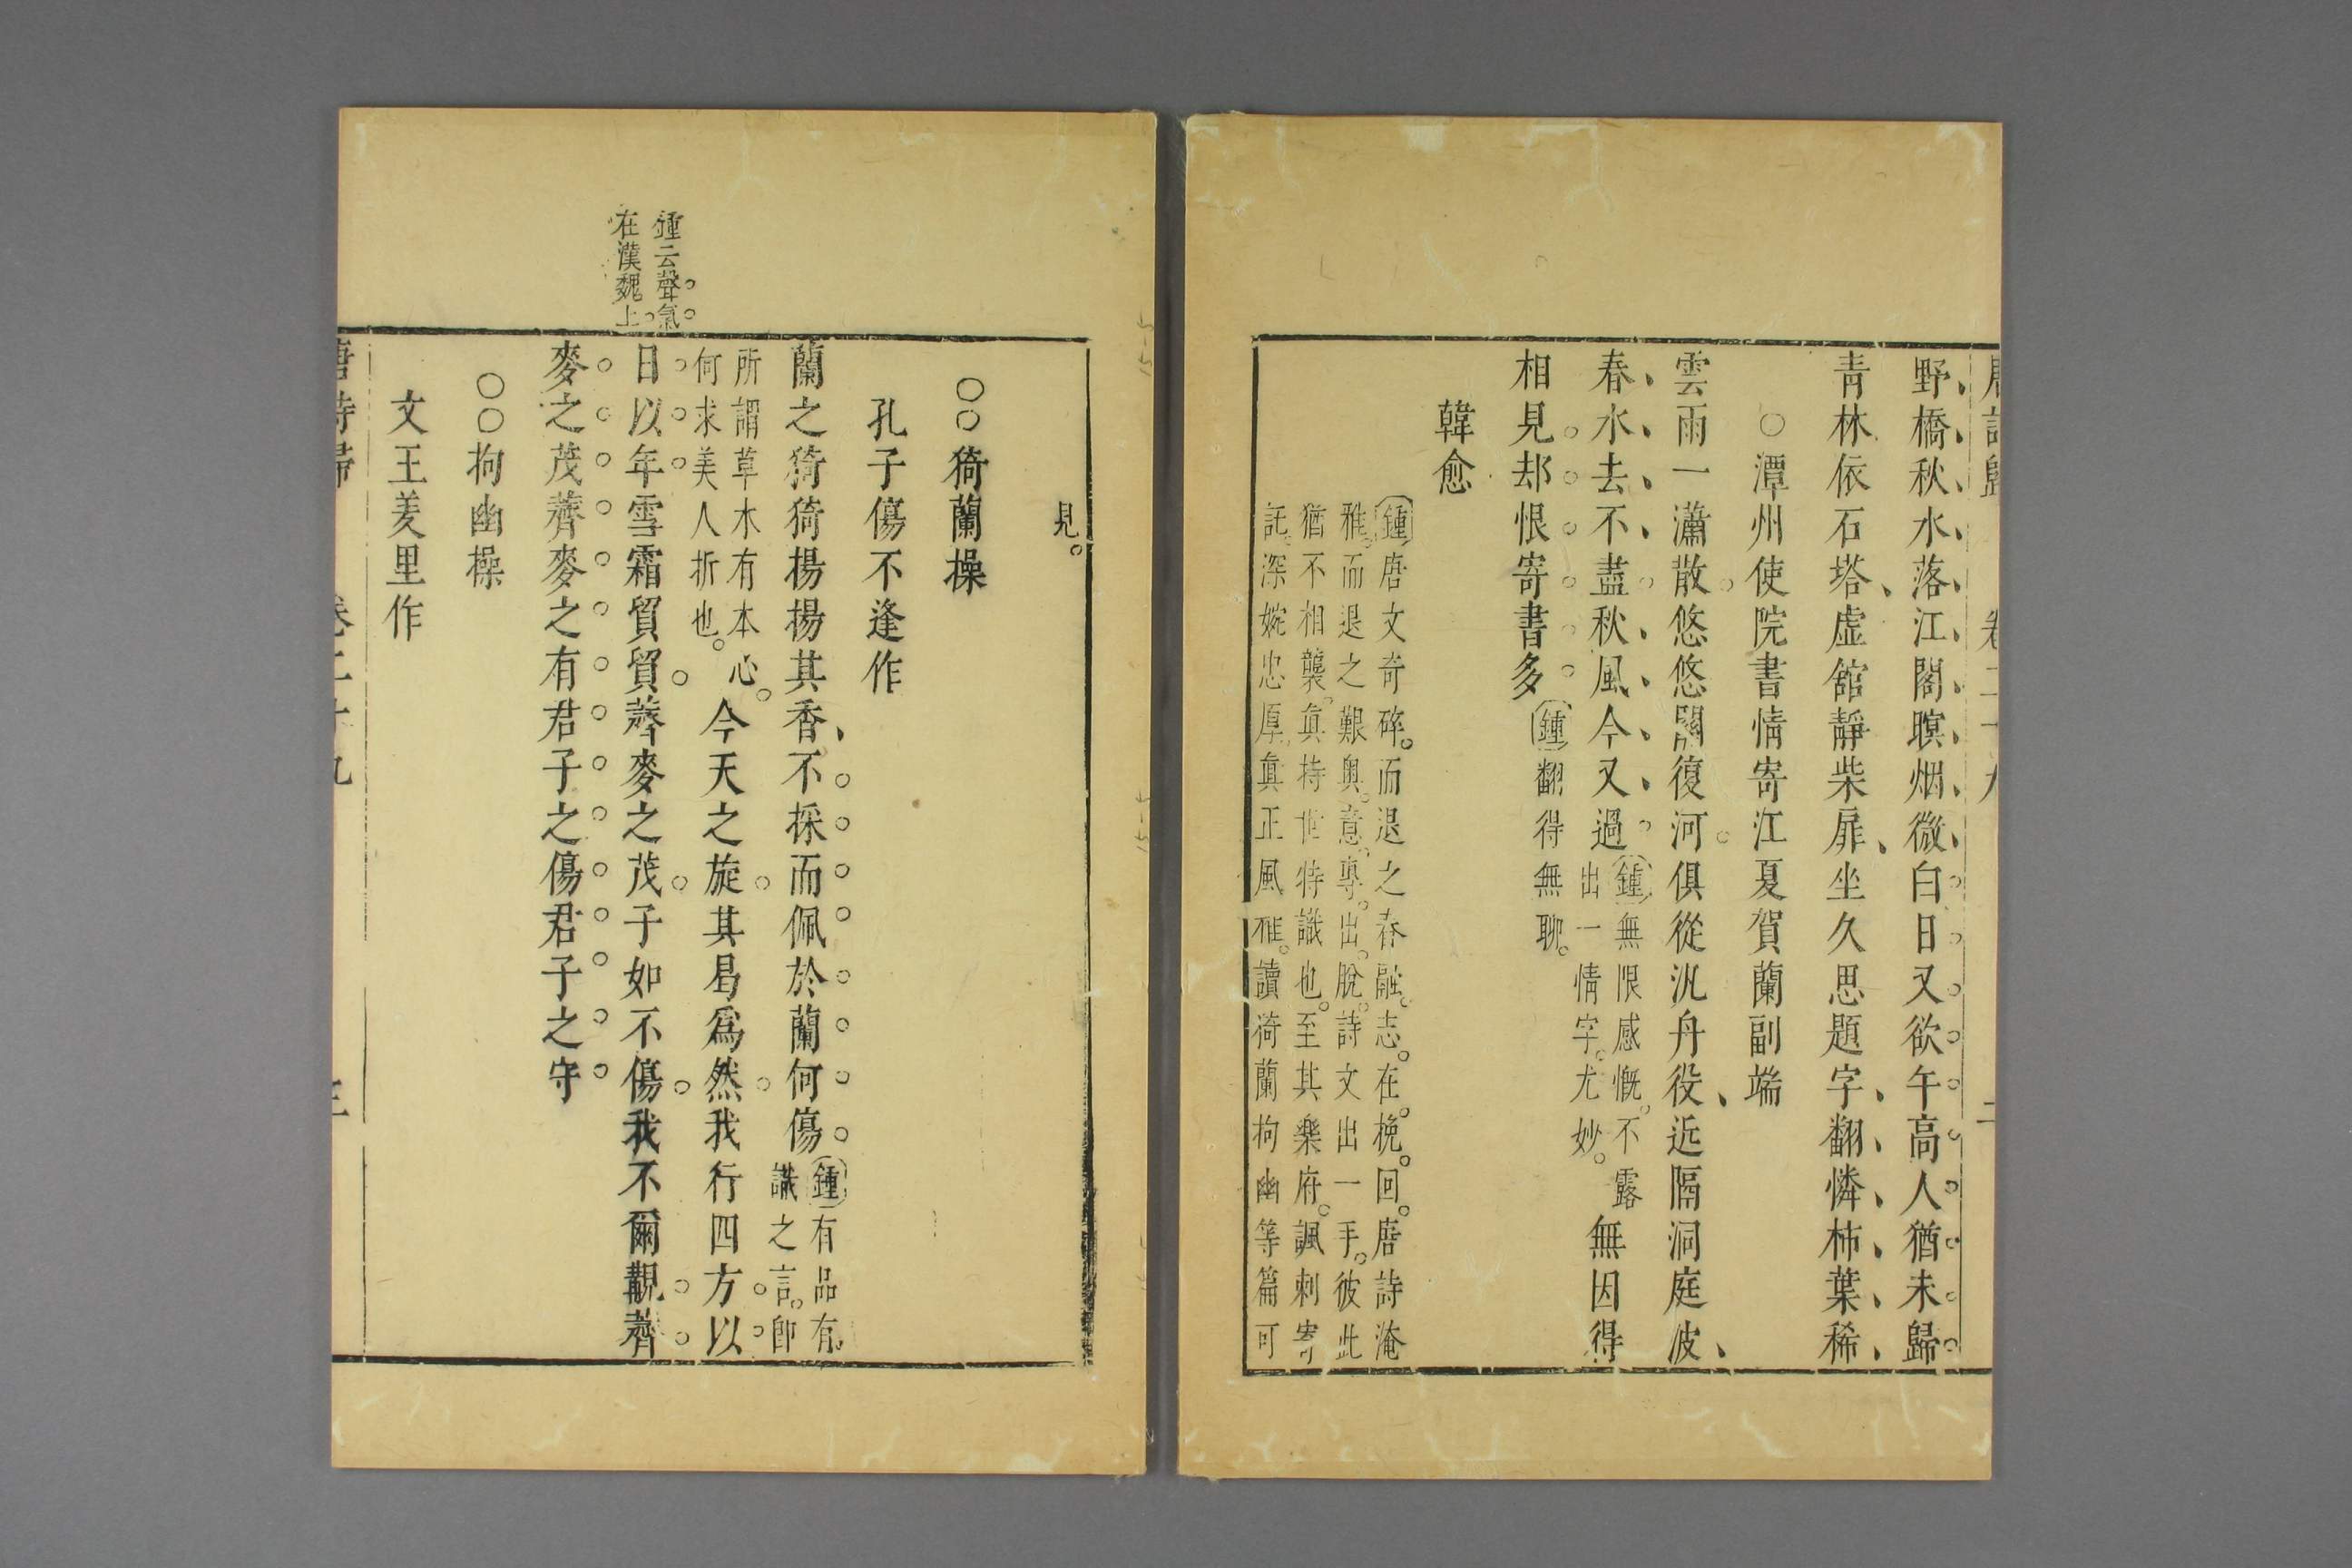 唐詩歸 卷二十九 二
野橋秋水落江閣暝烟微白日又欲午高人猶未歸
青林依石塔虛館靜柴扉坐久思題字翻憐柿葉稀
○潭州使院書情寄江夏賀蘭副端
雲雨一瀟散悠悠關復河俱從汎舟役近隔洞庭波
春水去不盡秋風今又過
鍾無限感慨不露
出一情字尤妙
無因得
相見却恨寄書多
鍾翻得無聊
韓愈
鍾唐文奇碎而退之春融志在挽回唐詩淹
雅而退之艱奥意專出脫詩文出一手彼此
猶不相襲真持世特識也至其樂府諷刺寄
託深婉忠厚真正風雅讀猗蘭拘幽等篇可
見
○○猗蘭操
孔子傷不逢作
蘭之猗猗揚揚其香不採而佩於蘭何傷
鍾有品有
識之言卽
所謂草木有本心
何求美人折也
今天之旋其曷爲然我行四方以
鍾云聲氣
在漢魏上
日以年雪霜貿貿薺麥之茂子如不傷我不爾覯薺
麥之茂薺麥之有君子之傷君子之守
○○拘幽操
文王羑里作
唐詩歸 卷二十九 三